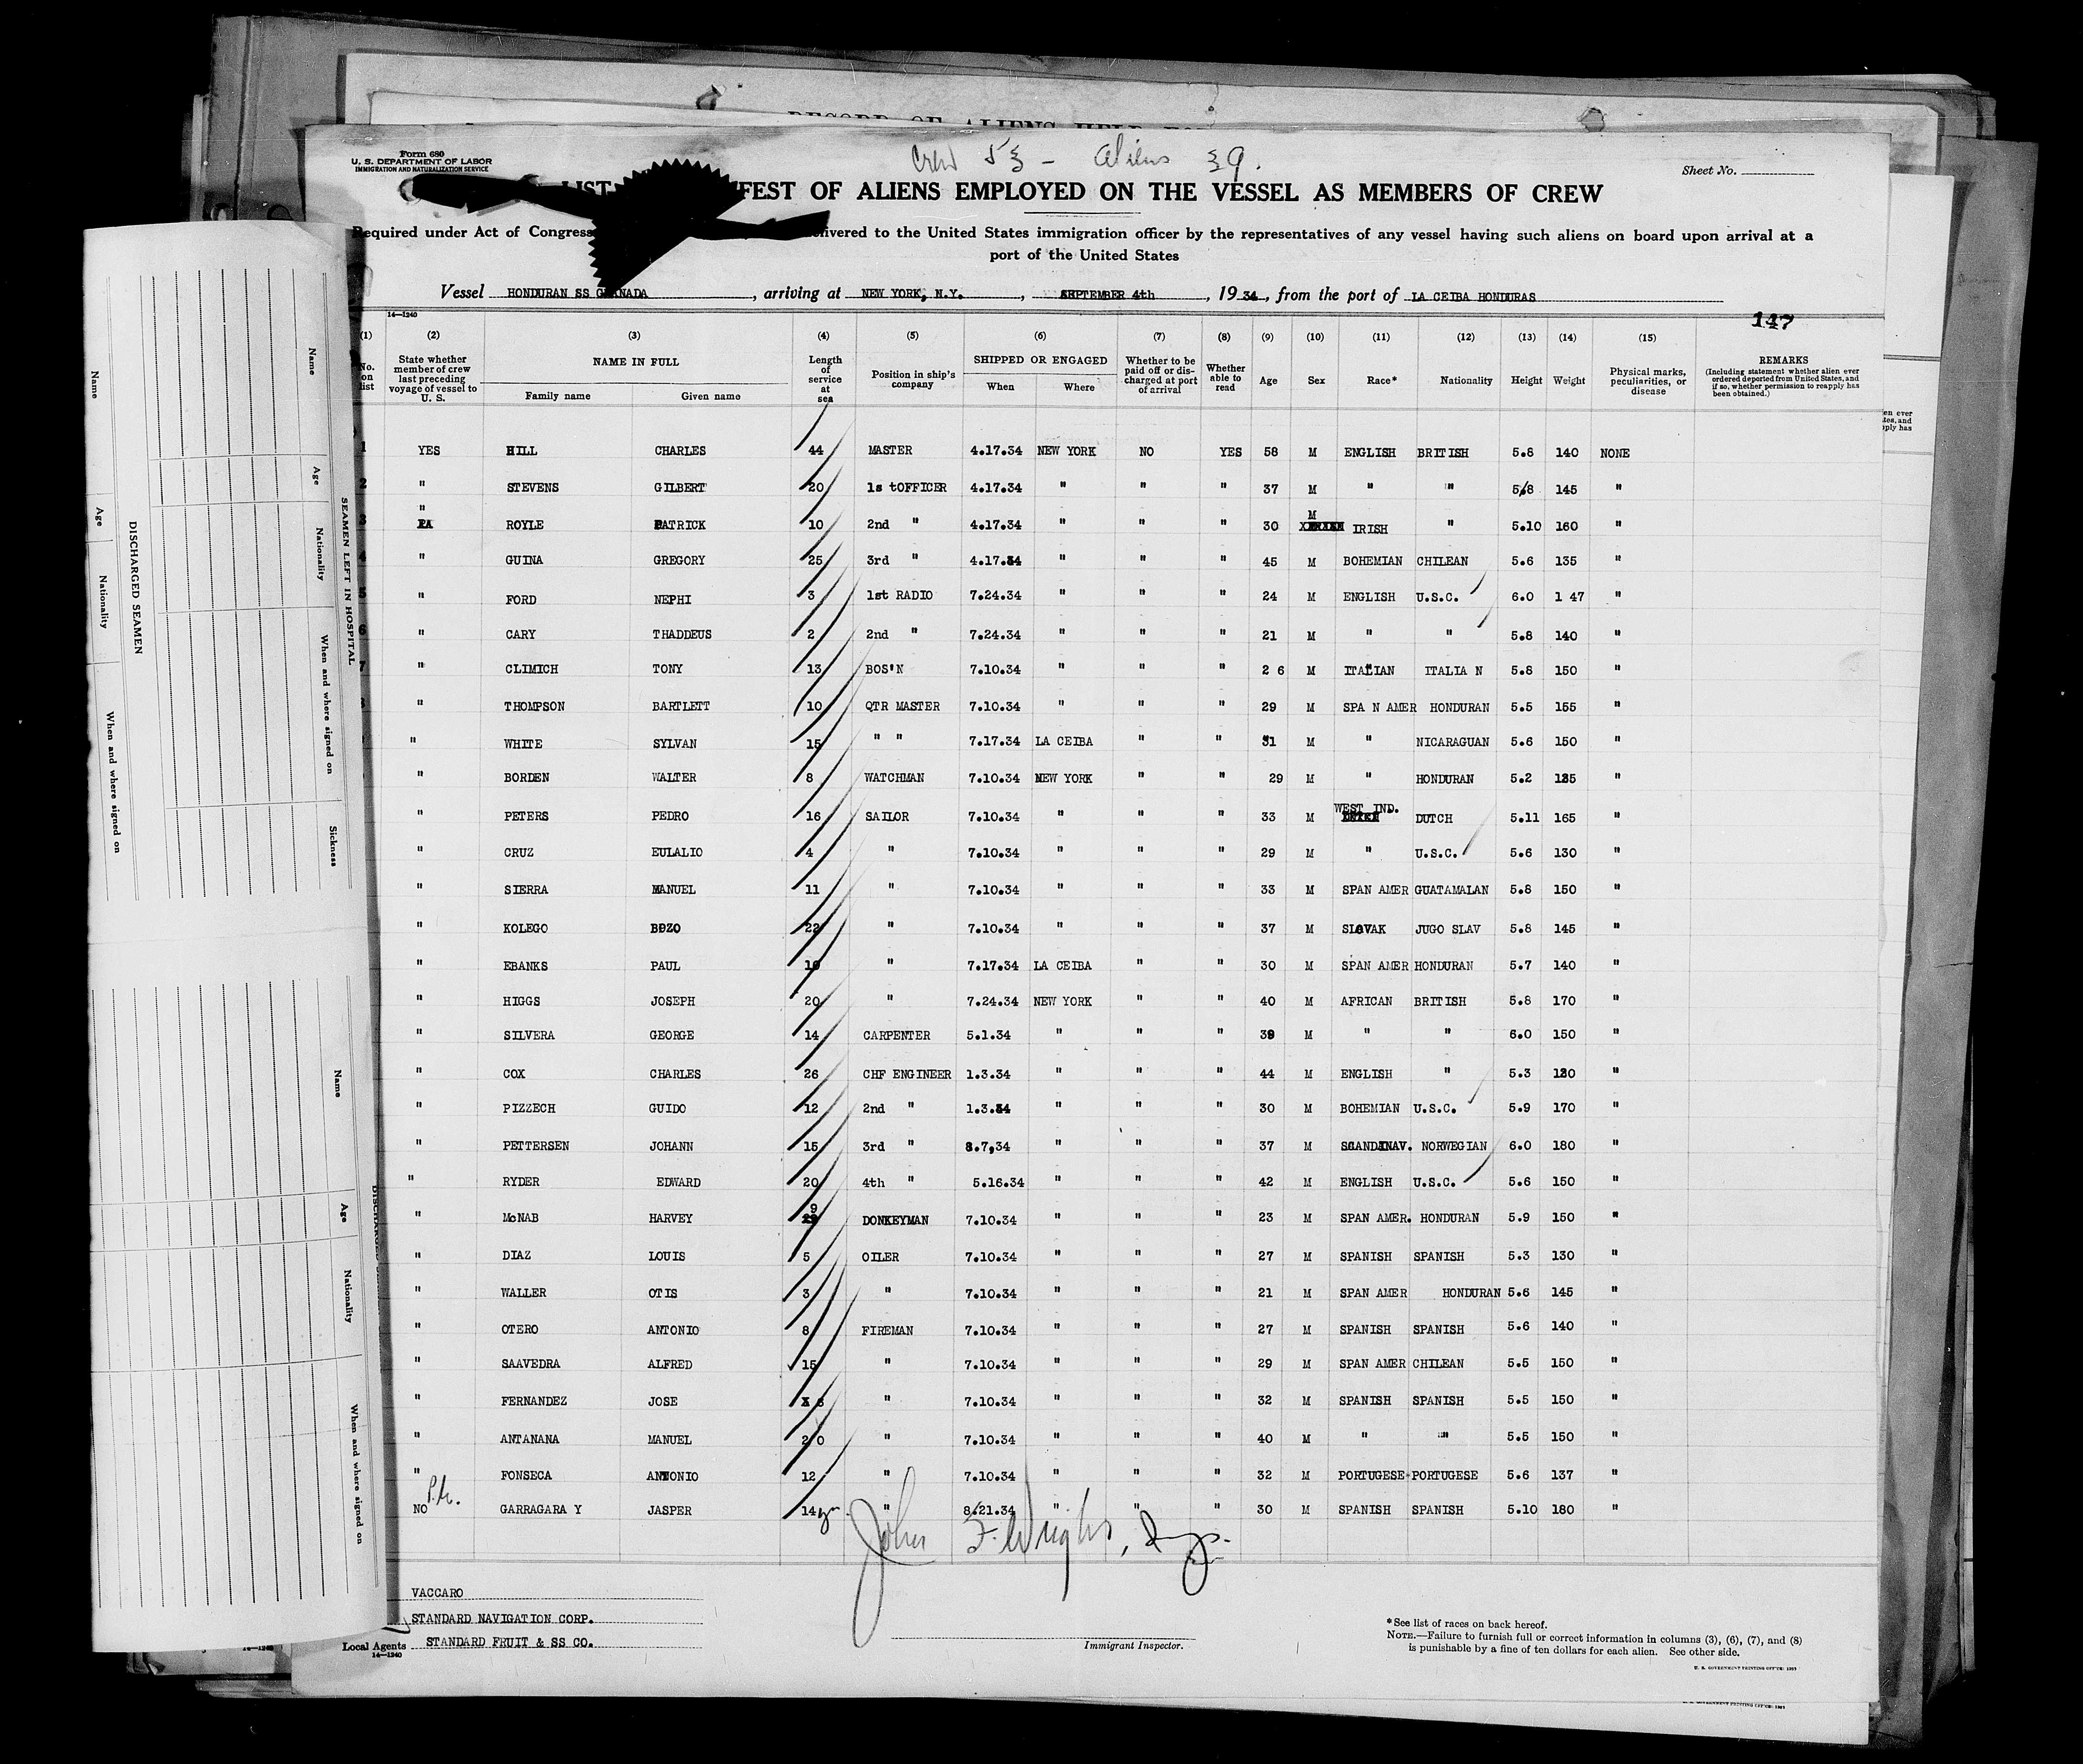 RECORD OF ALIENS HELD
Crew 53 - Aliens 39.
Form 680
U. S. DEPARTMENT OF LABOR
IMMIGRATION AND NATURALIZATION SERVICE
Sheet No.
LIST FEST OF ALIENS EMPLOYED ON THE VESSEL AS MEMBERS OF CREW
Required under Act of Congress livered to the United States immigration officer by the representatives of any vessel having such aliens on board upon arrival at a
port of the United States
Vessel HONDURAN SS GRANADA, arriving at NEW YORK, N.Y., SEPTEMBER 4th, 19 34, from the port of LA CEIBA HONDURAS
14—1240
147
(1) (2) (3) (4) (5) (6) (7) (8) (9) (10) (11) (12) (13) (14) (15)
No. on list
State whether member of crew last preceding voyage of vessel to U. S.
NAME IN FULL
Family name Given name
Length of service at sea
Position in ship's company
SHIPPED OR ENGAGED
When Where
Whether to be paid off or discharged at port of arrival
Whether able to read
Age Sex Race* Nationality Height Weight
Physical marks, peculiarities, or disease
REMARKS
(Including statement whether alien ever ordered deported from United States, and if so, whether permission to reapply has been obtained.)
1 YES HILL CHARLES 44 MASTER 4.17.34 NEW YORK NO YES 58 M ENGLISH BRITISH 5.8 140 NONE
2 " STEVENS GILBERT 20 1s tOFFICER 4.17.34 " " " 37 M " " 5.8 145 "
3 " ROYLE PATRICK 10 2nd " 4.17.34 " " " 30 M IRISH " 5.10 160 "
4 " GUINA GREGORY 25 3rd " 4.17.34 " " " 45 M BOHEMIAN CHILEAN 5.6 135 "
5 " FORD NEPHI 3 1st RADIO 7.24.34 " " " 24 M ENGLISH U.S.C. 6.0 1 47 "
6 " CARY THADDEUS 2 2nd " 7.24.34 " " " 21 M " " 5.8 140 "
7 " CLIMICH TONY 13 BOS'N 7.10.34 " " " 2 6 M ITALIAN ITALIA N 5.8 150 "
" THOMPSON BARTLETT 10 QTR MASTER 7.10.34 " " " 29 M SPA N AMER HONDURAN 5.5 155 "
" WHITE SYLVAN 15 " " 7.17.34 LA CEIBA " " 31 M " NICARAGUAN 5.6 150 "
" BORDEN WALTER 8 WATCHMAN 7.10.34 NEW YORK " " 29 M " HONDURAN 5.2 125 "
" PETERS PEDRO 16 SAILOR 7.10.34 " " " 33 M WEST IND. DUTCH 5.11 165 "
" CRUZ EULALIO 4 " 7.10.34 " " " 29 M " U.S.C. 5.6 130 "
" SIERRA MANUEL 11 " 7.10.34 " " " 33 M SPAN AMER GUATAMALAN 5.8 150 "
" KOLEGO BOZO 22 " 7.10.34 " " " 37 M SLOVAK JUGO SLAV 5.8 145 "
" EBANKS PAUL 10 " 7.17.34 LA CEIBA " " 30 M SPAN AMER HONDURAN 5.7 140 "
" HIGGS JOSEPH 20 " 7.24.34 NEW YORK " " 40 M AFRICAN BRITISH 5.8 170 "
" SILVERA GEORGE 14 CARPENTER 5.1.34 " " " 39 M " " 6.0 150 "
" COX CHARLES 26 CHF ENGINEER 1.3.34 " " " 44 M ENGLISH " 5.3 120 "
" PIZZECH GUIDO 12 2nd " 1.3.34 " " " 30 M BOHEMIAN U.S.C. 5.9 170 "
" PETTERSEN JOHANN 15 3rd " 8.7,34 " " " 37 M SCANDINAV. NORWEGIAN 6.0 180 "
" RYDER EDWARD 20 4th " 5.16.34 " " " 42 M ENGLISH U.S.C. 5.6 150 "
" McNAB HARVEY 9 DONKEYMAN 7.10.34 " " " 23 M SPAN AMER. HONDURAN 5.9 150 "
" DIAZ LOUIS 5 OILER 7.10.34 " " " 27 M SPANISH SPANISH 5.3 130 "
" WALLER OTIS 3 " 7.10.34 " " " 21 M SPAN AMER HONDURAN 5.6 145 "
" OTERO ANTONIO 8 FIREMAN 7.10.34 " " " 27 M SPANISH SPANISH 5.6 140 "
" SAAVEDRA ALFRED 15 " 7.10.34 " " " 29 M SPAN AMER CHILEAN 5.5 150 "
" FERNANDEZ JOSE 8 " 7.10.34 " " " 32 M SPANISH SPANISH 5.5 150 "
" ANTANANA MANUEL 20 " 7.10.34 " " " 40 M " " 5.5 150 "
" FONSECA ANTONIO 12 " 7.10.34 " " " 32 M PORTUGESE PORTUGESE 5.6 137 "
NO GARRAGARA Y JASPER 14 " 8/21.34 " " " 30 M SPANISH SPANISH 5.10 180 "
John F. Wright, Insp.
VACCARO
STANDARD NAVIGATION CORP.
Local Agents STANDARD FRUIT & SS CO.
14—1240
Immigrant Inspector.
*See list of races on back hereof.
NOTE.—Failure to furnish full or correct information in columns (3), (6), (7), and (8)
is punishable by a fine of ten dollars for each alien. See other side.
Name
Age
Nationality
When and where signed on
DISCHARGED SEAMEN
Name
Age
Nationality
When and where signed on
Sickness
SEAMEN LEFT IN HOSPITAL
Name
Age
Nationality
When and where signed on